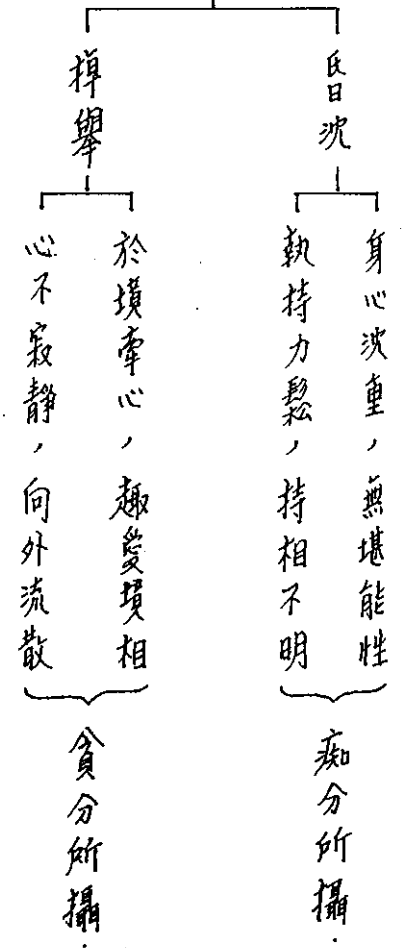 昏沈
身心沈重，無堪能性
執持力鬆，持相不明
痴分所攝．
掉舉
於境牽心，趣愛境相
心不寂靜，向外流散
貪分所攝．